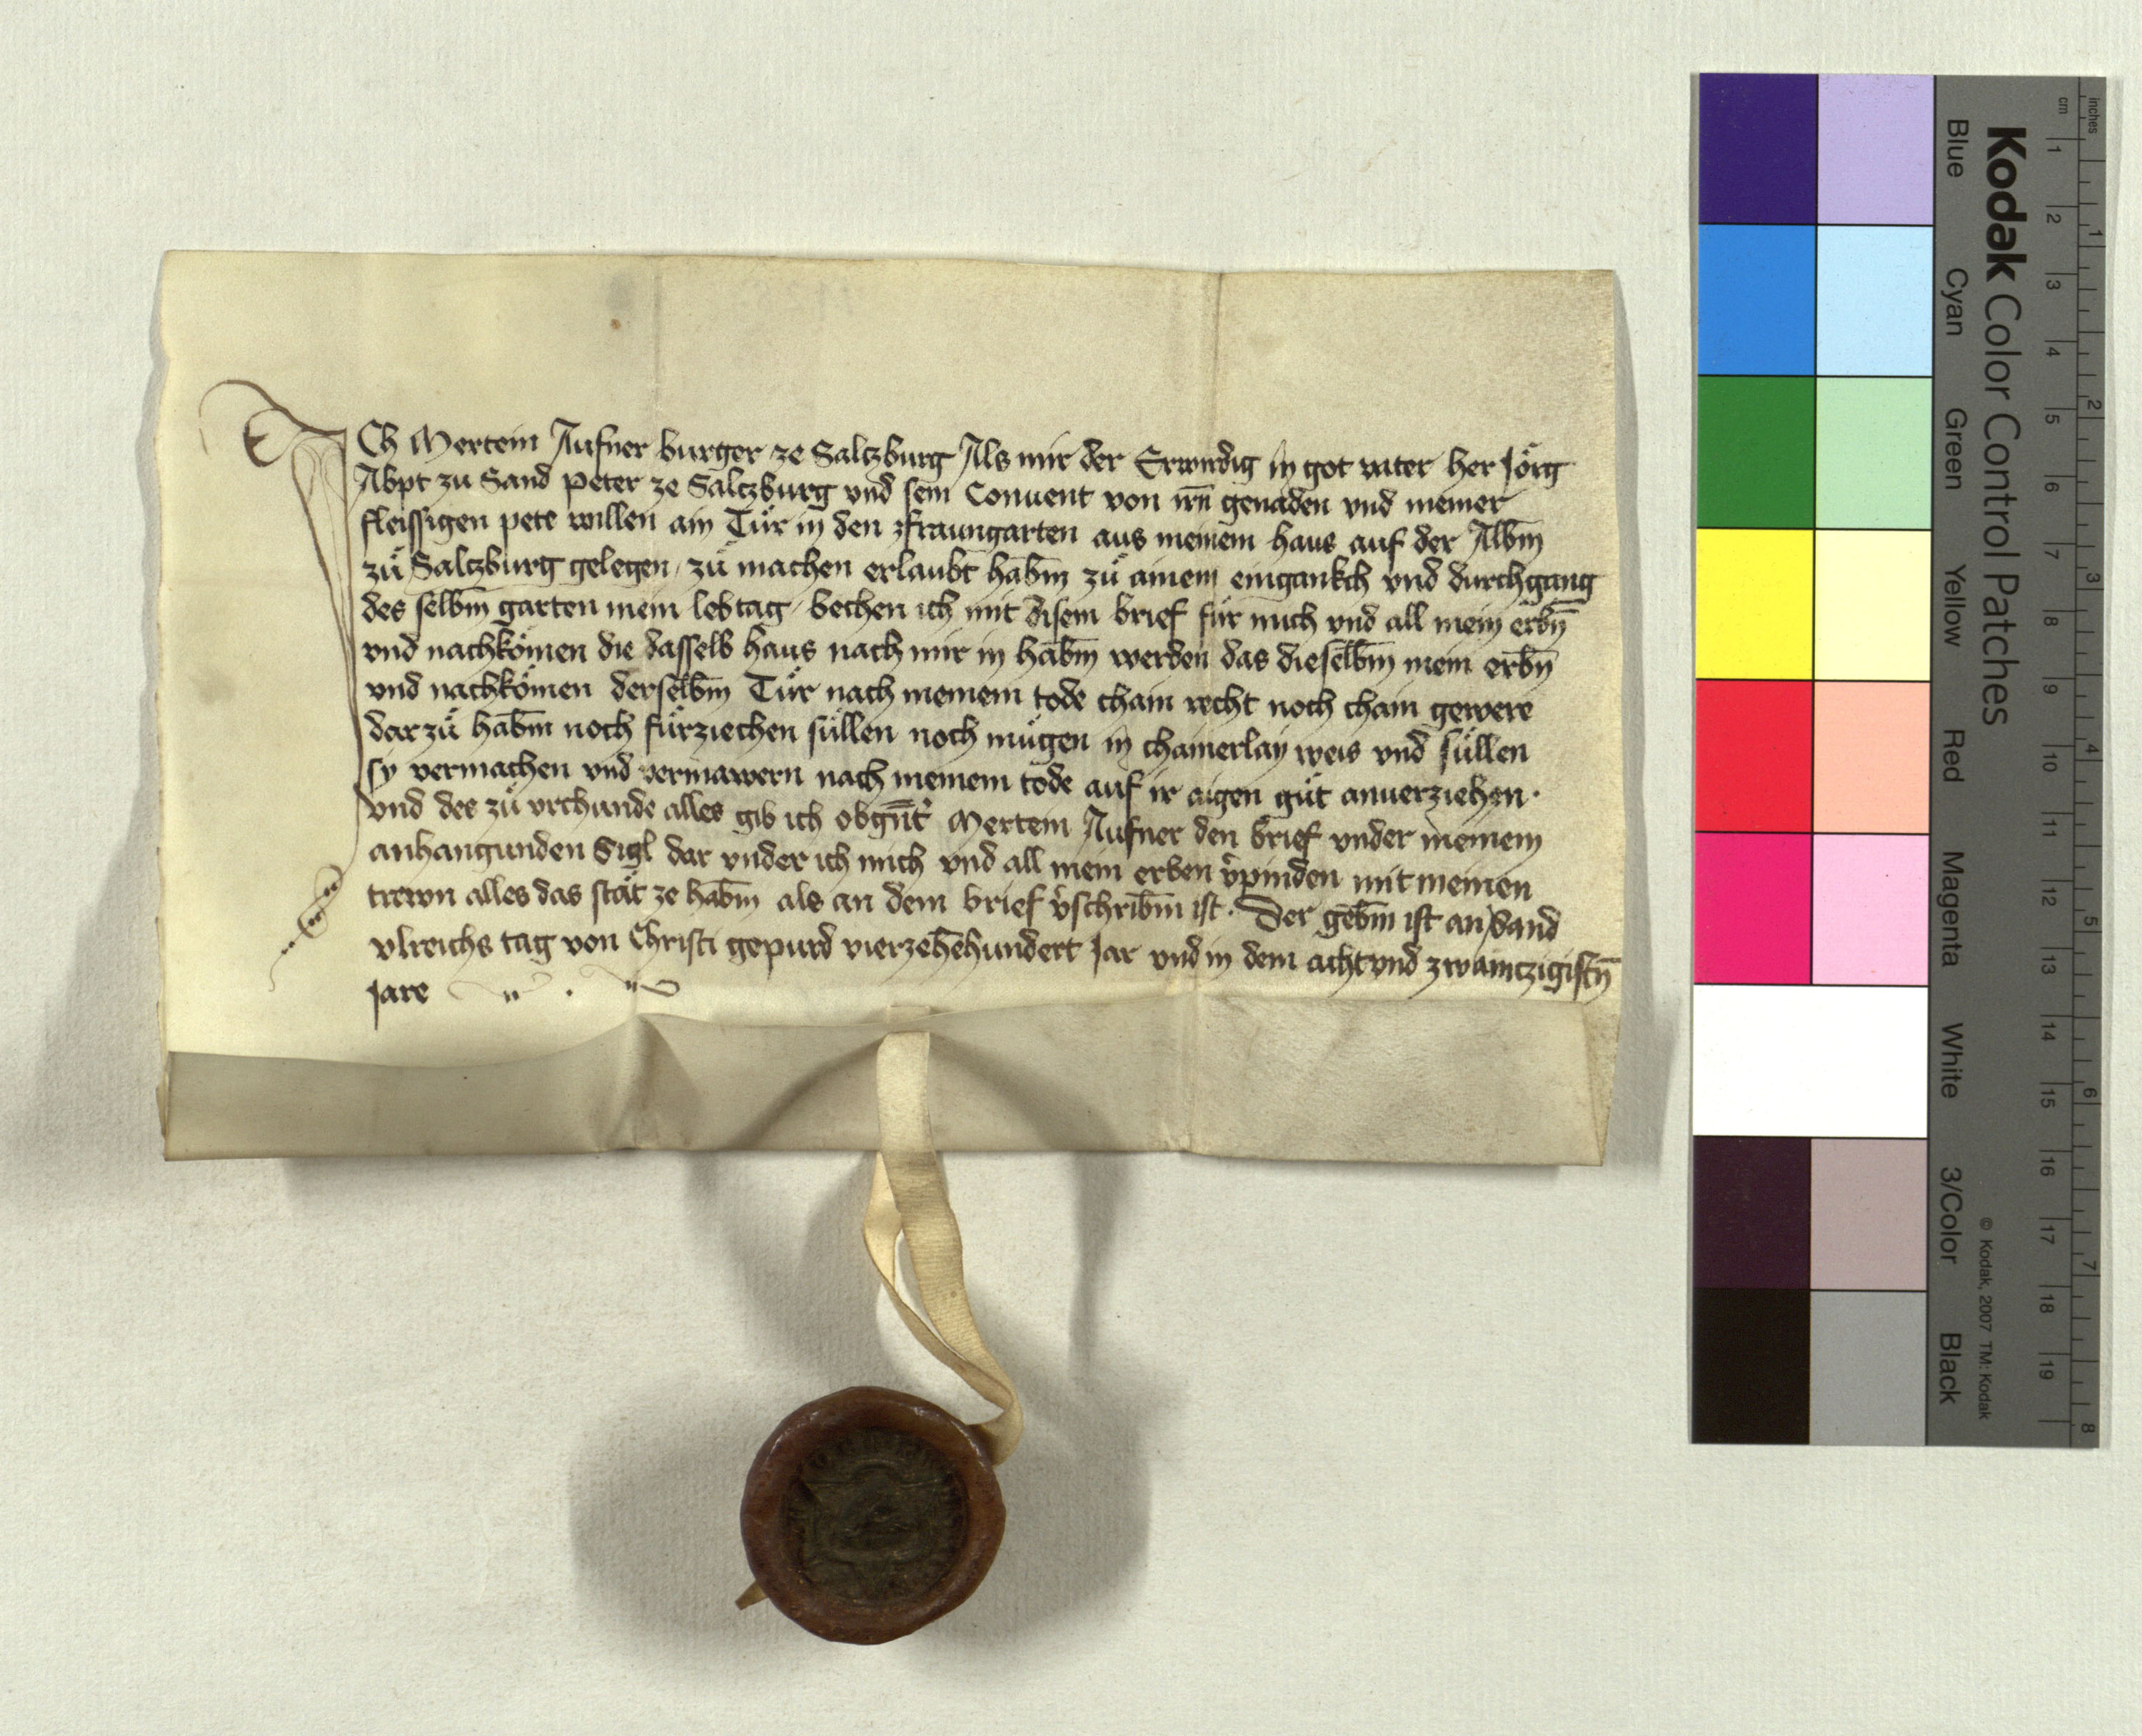 ICh Mertein Aufner burger ze Salczburg Als mir der Erwirdig in got vater her Jörg
Abpt zu Sand Peter ze Salczburg vnd sein Conuent von irn̄ genaden vnd meiner
fleissigen pete willen ain Tür in den fraungarten aus meinem haus auf der Albm̄
zů Salczburg gelegen / zů machen erlaubt habm̄ zů ainem eingankch vnd durchgang
des selbm̄ garten mein lebtag / bechen ich mit disem brief für mich vnd all mein erbn̄
vnd nachkömen die dasselb haus nach mir in habm̄ werden das dieselbm̄ mein erbn̄
vnd nachkömen derselbm̄ Tür nach meinem tode chain recht noch chain gewere
dar zů habm̄ noch fürziechen süllen noch mügen in chainerlay weis vnd süllen
sy vermachen vnd vermawern nach meinem tode auf ir aigen gůt anuerziehen ·
vnd des zů vrchunde alles gib ich obgn̄t' Mertein Aufner den brief vnder meinem
anhangunden Sigl dar vnder ich mich vnd all mein erben v'pinden mit meinen
trewn alles das stät ze habm̄ als an dem brief v'schribm̄ ist · Der gebm̄ ist an Sand
vlreichs tag von Christi gepurd vierzehēhundert Jar vnd in dem acht vnd zwainczigistn̄
Jare
Kodak Color Control Patches
Blue Cyan Green Yellow Red Magenta White 3/Color Black
© Kodak, 2007 TM: Kodak
cm 1 2 3 4 5 6 7 8 9 10 11 12 13 14 15 16 17 18 19
inches 1 2 3 4 5 6 7 8